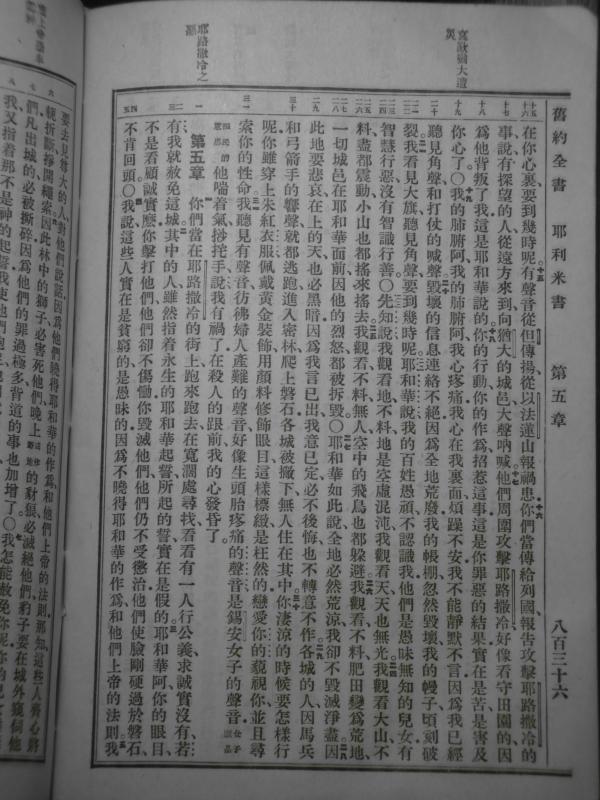 舊約全書 耶利米書 第五章 八百三十六
哀歎猶大遭災
耶路撒冷之惡
在你心裏要到幾時呢有聲音從但傳揚從以法蓮山報禍患你們當傳給列國報告攻擊耶路撒冷的
事說有探望的人從遠方來到向猶大的城邑大聲呐喊他們周圍攻擊耶路撒冷好像看守田園的因
為他背叛了我這是耶和華說的你的行動你的作為招惹這事這是你罪惡的結果實在是苦是害及
你心了〇我的肺腑阿我的肺腑阿我心疼痛我心在我裏面煩躁不安我不能靜默不言因為我已經
聽見角聲和打仗的喊聲毀壞的信息連絡不絕因為全地荒廢我的帳棚忽然毀壞我的幔子頃刻破
裂我看見大旗聽見角聲要到幾時呢耶和華說我的百姓愚頑不認識我他們是愚昧無知的兒女有
智慧行惡沒有智識行善〇先知說我觀看地不料地是空虛混沌我觀看天天也無光我觀看大山不
料盡都震動小山也都搖來搖去我觀看不料無人空中的飛鳥也都躲避我觀看不料肥田變為荒地
一切城邑在耶和華面前因他的烈怒都被拆毀〇耶和華如此說全地必然荒涼我卻不毀滅淨盡因
此地要悲哀在上的天也必黑暗因為我言已出我意已定必不後悔也不轉意不作各城的人因馬兵
和弓箭手的響聲就都逃跑進入密林爬上磐石各城被撇下無人住在其中你淒涼的時候要怎樣行
呢你雖穿上朱紅衣服佩戴黃金裝飾用顏料修飾眼目這樣標緻是枉然的戀愛你的藐視你並且尋
索你的性命我聽見有聲音彷彿婦人產難的聲音好像生頭胎疼痛的聲音是錫安女子的聲音
他喘着氣挓挓手說我有禍了在殺人的跟前我的心發昏了
第五章 你們當在耶路撒冷的街上跑來跑去在寬闊處尋找看看有一人行公義求誠實沒有若
有我就赦免這城其中的人雖然指着永生的耶和華起誓所起的誓實在是假的耶和華阿你的眼目
不是看顧誠實麽你擊打他們他們卻不傷慟你毀滅他們他們仍不受懲治他們使臉剛硬過於磐石
不肯回頭〇我說這些人實在是貧窮的是愚昧的因為不曉得耶和華的作為和他們上帝的法則我
要去見尊大的人對他們說話因為他們曉得耶和華的作為和他們上帝的法則那知這些人齊心將
軛折斷掙開繩索因此林中的獅子必害死他們晚上
的豺狼必滅絕他們豹子要在城外窺伺他
們凡出城的必被撕碎因為他們的罪過極多背道的事也加增了〇我怎能赦免你呢
我又指着那不是神的起誓我使他們飽足